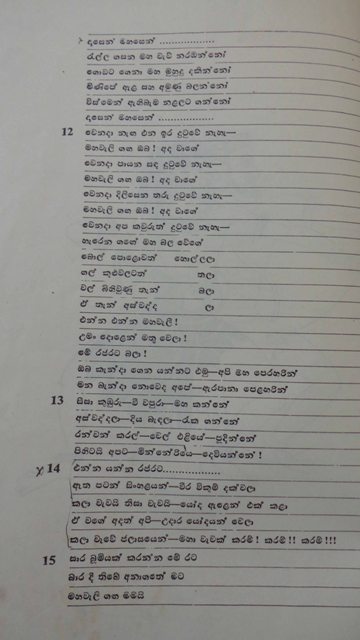 දාසෙන් මහසෙන් ..................
රැල්ල ගසන මහ වැව් තරඹන්නෝ
ගොඩට ගෙනා මහ මුහුදු දකින්නෝ
මිණිපේ ඇළ සහ අමුණු බලන්නෝ
විස්මෙන් ඇඟිබුම් නළලට ගන්නෝ
දාසෙන් මහසෙන් ..................
12 වෙනදා නැඟ එන ඉර දුටුවේ නැහැ—
මහවැලි ගඟ ඔබ! අද වාගේ
වෙනදා පායන සඳ දුටුවේ නැහැ—
මහවැලි ගඟ ඔබ! අද වාගේ
වෙනදා දිලිසෙන තරු දුටුවේ නැහැ—
මහවැලි ගඟ ඔබ! අද වාගේ
වෙනදා අප කවුරුත් දුටුවේ නැහැ—
හැරෙන ගඟේ මහ බල වේගේ
බොල් පොළොවත් හොල්ලලා
ගල් කුළුවලටත් තලා
වල් බිහිවුණු තැන් බලා
ඒ තැන් අස්වද්ද ලා
එන්න එන්න මහවැලි!
උමං දොළෙන් මතු වෙලා!
මේ රජරට බලා!
ඔබ කැන්දා ගෙන යන්නට එමු—අපි මහ පෙරහරින්
මන බැන්දා නොවෙද අපේ—ඇරපානා පෙළහරින්
13 ඔසා කුඹුරු—වී වපුරා—මහ කන්නේ
අස්වද්දලා—දිය බැඳලා—රැක ගන්නේ
රන්වන් කරල්—වෙල් එළියේ—පුදින්නේ
පිහිටයි අපට—මින්නේරියෙ—දෙවියන්නේ!
14 එන්න යන්න රජරට..................
ඈත පටන් සිංහලයන්—වීර වික්‍රම් දක්වලා
කලා වැවයි තිසා වැවයි—යෝද ඇළෙන් එක් කළා
ඒ වගේ අදත් අපි—උදාර යෝදයන් වෙලා
කලා වැවේ ජලාසයෙන්—මහා වැවක් කරමි! කරමි!! කරමි!!!
15 සාර බූමියක් කරන්න මේ රට
බාර දී තිබේ අනාගතේ මට
මහවැලි ගඟ මමයි